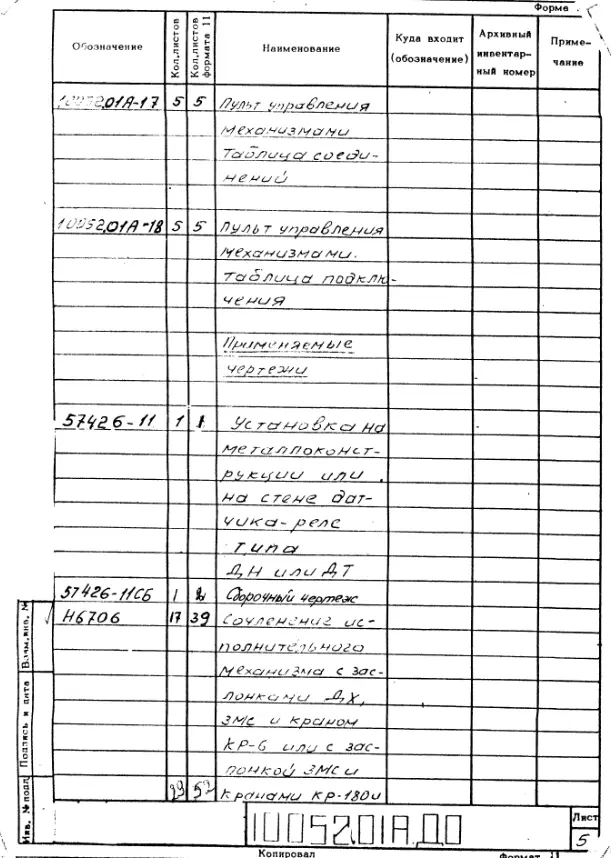 Форма
Обозначение
Кол.листов
Кол.листов формата 11
Наименование
Куда входит (обозначение)
Архивный инвентарный номер
Примечание
10052.01А-17 5 5 Пульт управления
механизмами
Таблица соеди-
нений
10052.01А-18 5 5 Пульт управления
механизмами.
Таблица подклю-
чения
Применяемые
чертежи
57426-11 1 1 Установка на
металлоконст-
рукции или
на стене дат-
чика-реле
типа
ДН или ДТ
57426-11СБ 1 Сборочный чертеж
Н6706 17 39 Сочленение ис-
полнительного
механизма с зас-
лонками ДХ,
ЗМС и краном
КР-6 или с зас-
лонкой ЗМС и
кранами КР-180и
Взам.инв. №
Подпись и дата
Инв. № подл
10052.01А.Д0
Лист
5
Копировал
Формат 11